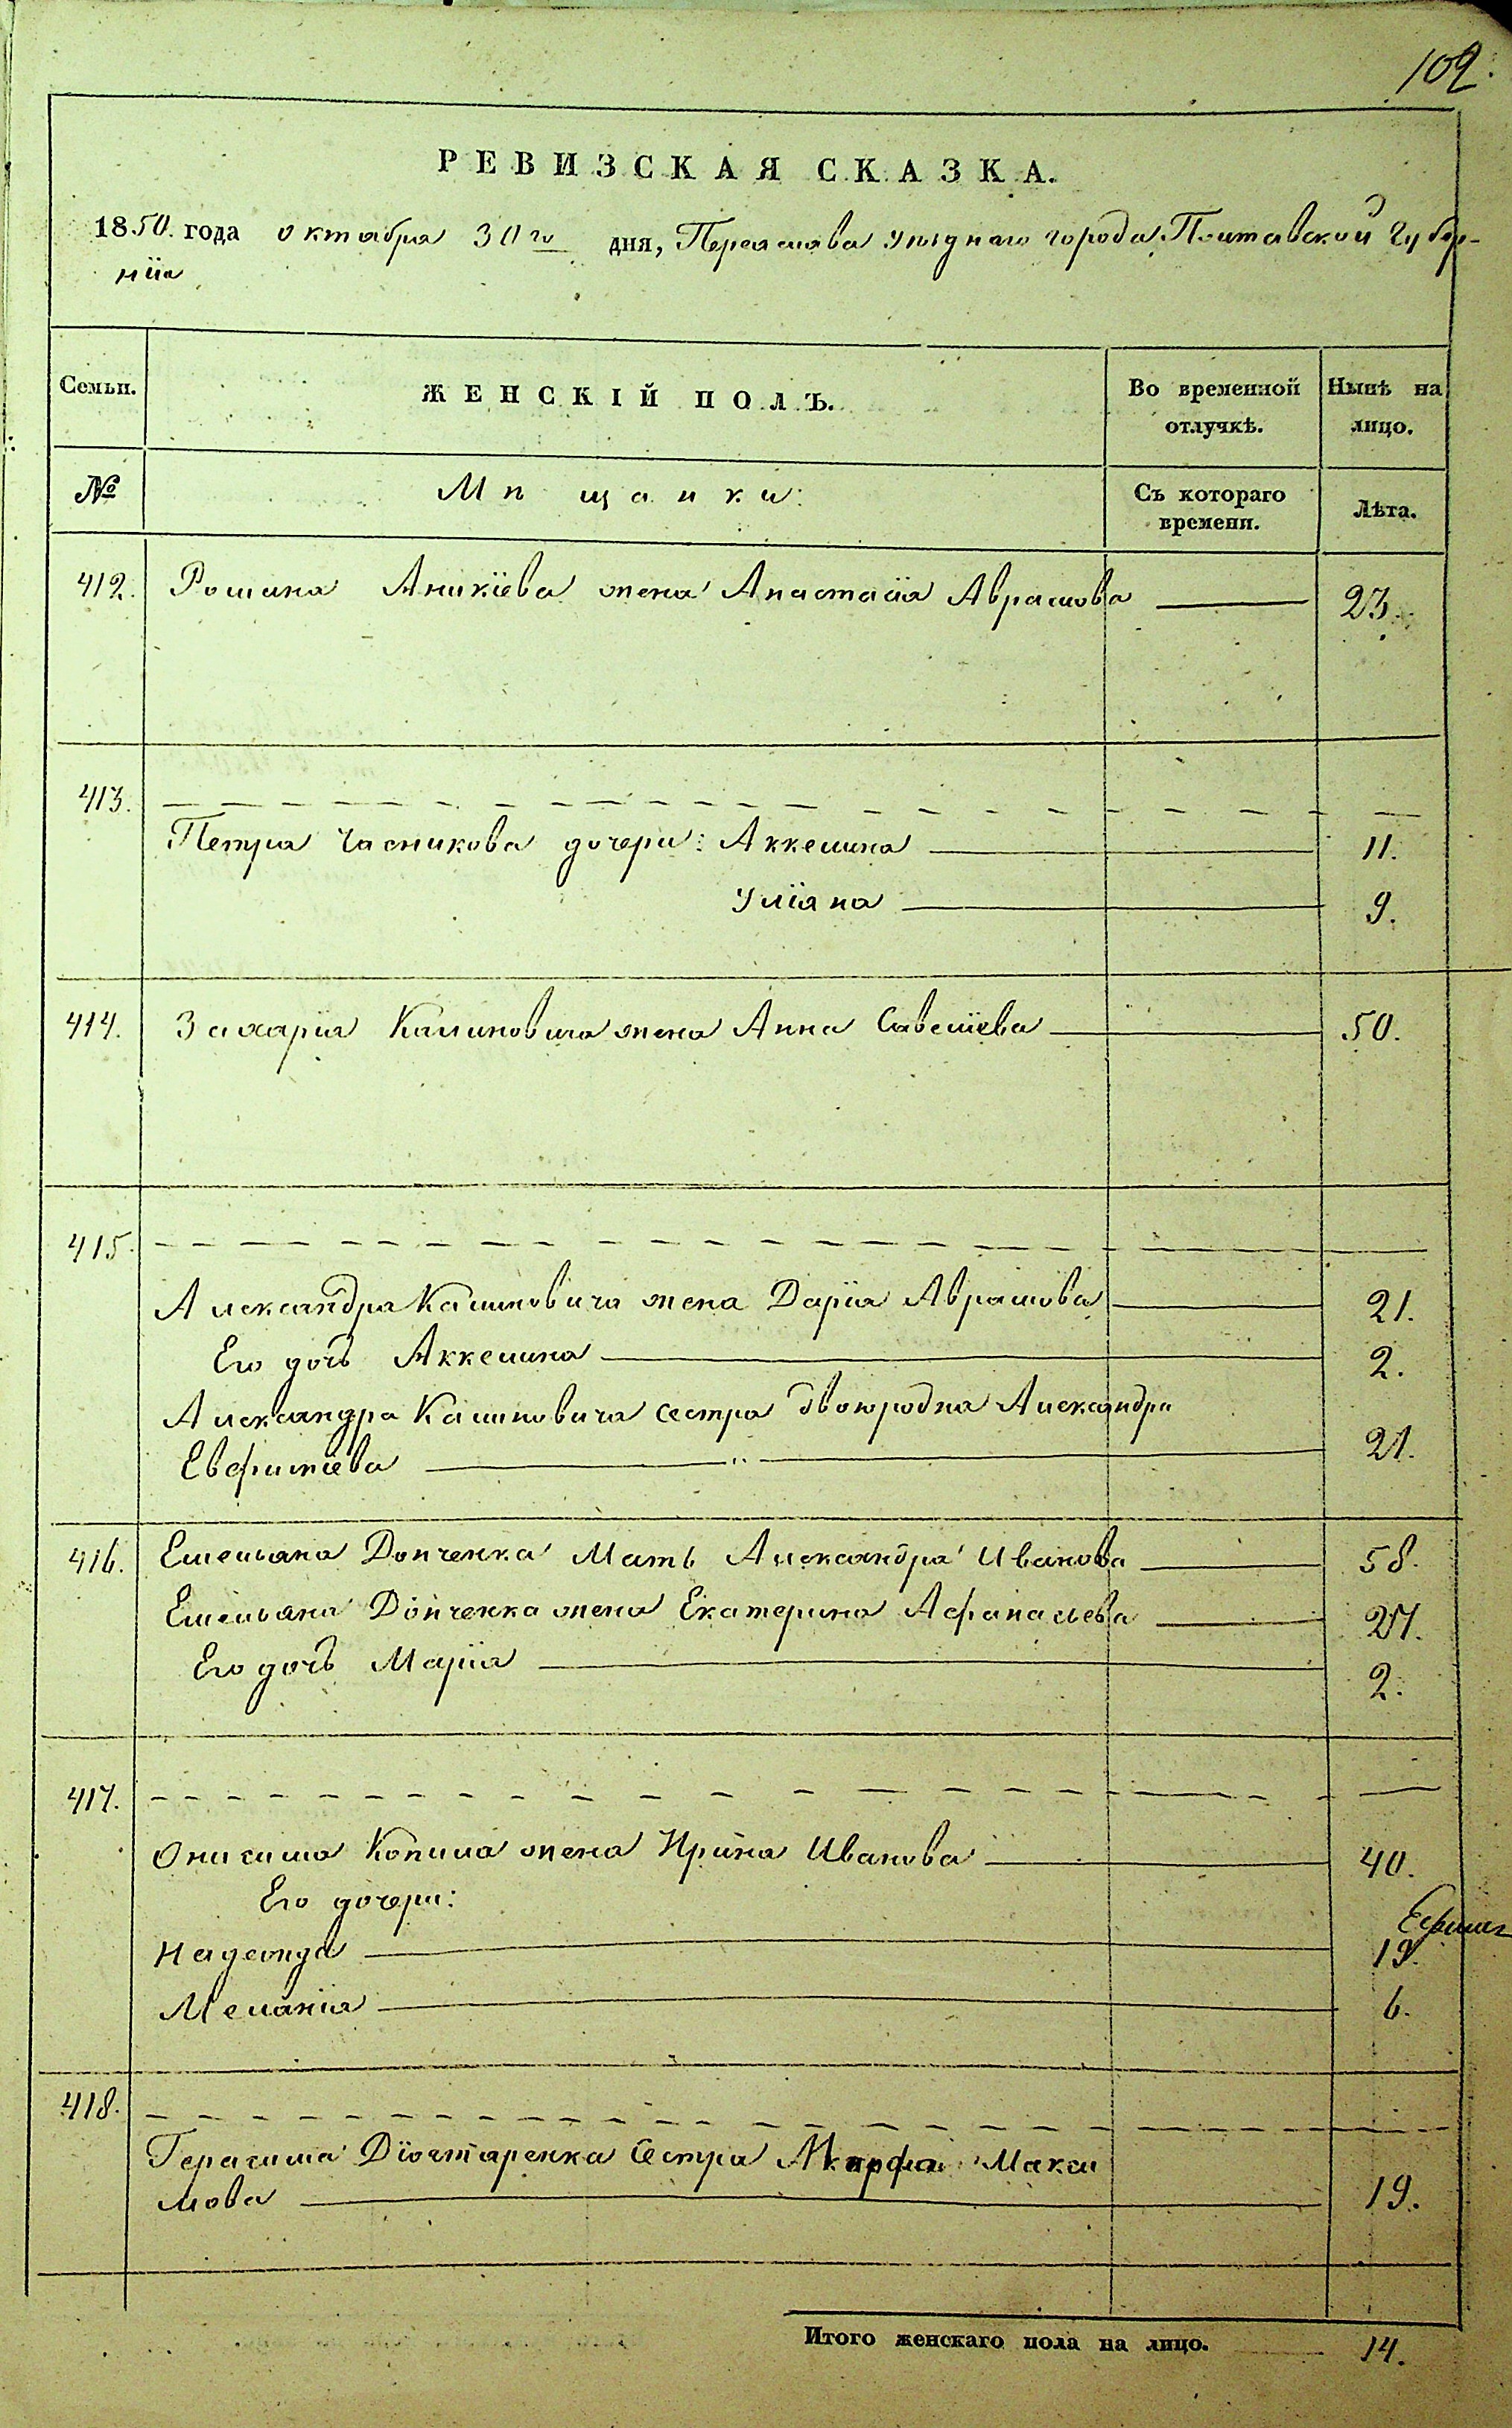 102.
РЕВИЗСКАЯ СКАЗКА.
1850. года октября 30го дня, Переяслава уѣзднаго города Полтавской Губер-
нiи
Семьи. ЖЕНСКIЙ ПОЛЪ. Во временной отлучкѣ. Нынѣ на лицо.
№ Мѣщанки: Съ котораго времени. Лѣта.
412. Романа Аникiева жена Анастасiя Аврамова 23.
413.
Петра Часникова дочери: Аккелина 11.
Улiяна 9.
414. Захарiя Калиновича жена Анна Савелiева 50.
415.
Александра Калиновича жена Дарiя Аврамова 21.
Его дочь Аккелина 2.
Александра Калиновича сестра двоюродна Александра
Евфимiева 21.
416. Емельяна Донченка Мать Александра Иванова 58.
Емельяна Донченка жена Екатерина Афанасьева 27.
Его дочь Марiя 2.
417.
Онисима Копила жена Ирина Иванова 40.
Его дочери:
Надежда 19.
Меланiя 6.
418.
Герасима Дiогтаренка Сестра Марфа Макси
мова 19.
Итого женскаго пола на лицо. 14.